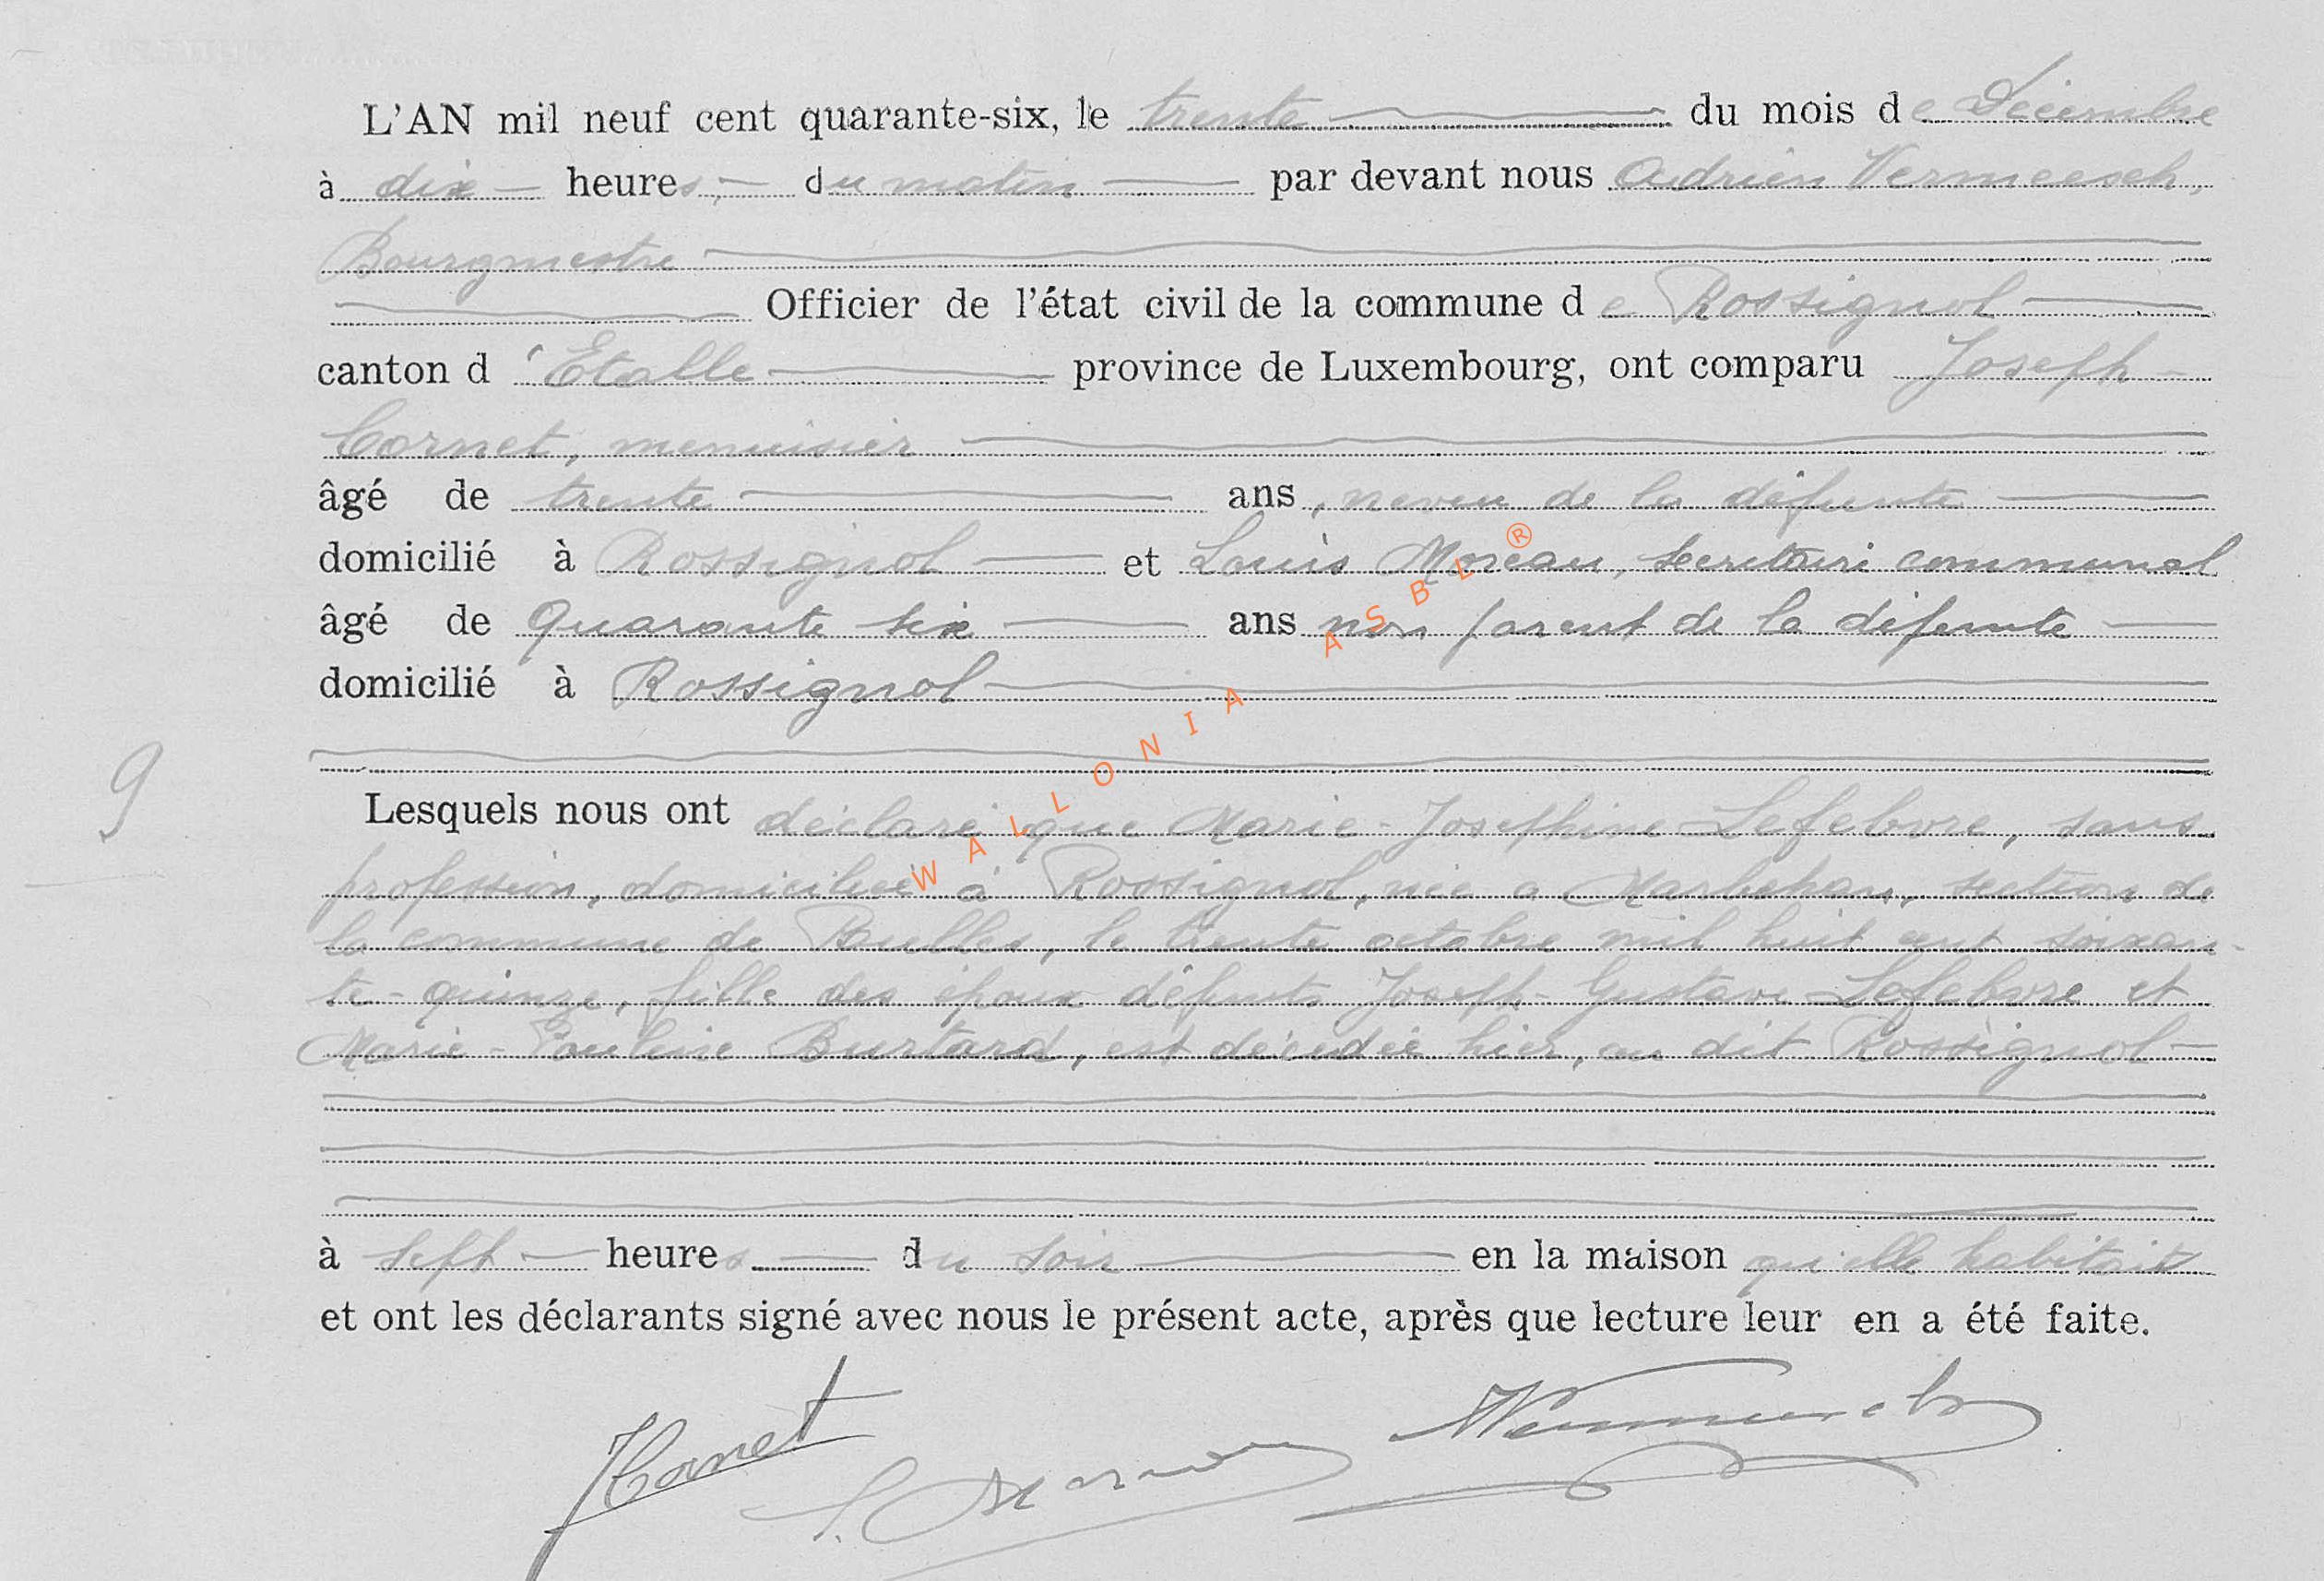 L'AN mil neuf cent quarante-six, le trente du mois de Décembre
à dix heures, du matin par devant nous Adrien Vermeesch,
Bourgmestre
Officier de l'état civil de la commune de Rossignol
canton d'Etalle province de Luxembourg, ont comparu Joseph
Cornet, menuisier
âgé de trente ans, neveu de la défunte
domicilié à Rossignol et Louis Moreau, secrétaire communal
âgé de quarante six ans non parent de la défunte
domicilié à Rossignol
9
Lesquels nous ont déclaré que Marie-Joséphine Lefebvre, sans
profession, domiciliée à Rossignol, née a Marbehan, section de
la commune de Rulles, le trente octobre mil huit cent soixan-
te-quinze, fille des époux défunts Joseph-Gustave Lefebvre et
Marie-Pauline Burtard, est décédée hier, au dit Rossignol
à sept heures du soir en la maison qu'elle habitait
et ont les déclarants signé avec nous le présent acte, après que lecture leur en a été faite.
JCornet
L. Moreau
AVermeesch
WALLONIA ASBL ®